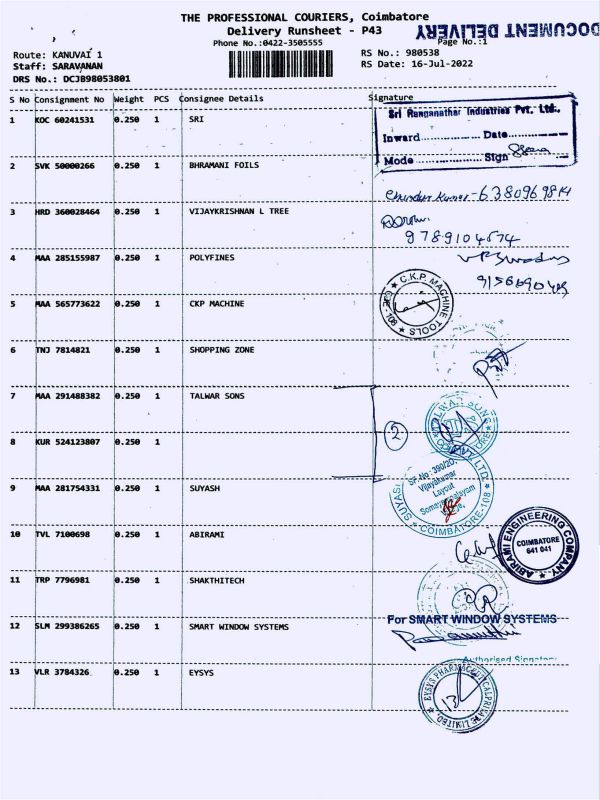 THE PROFESSIONAL COURIERS, Coimbatore
DOCUMENT DELIVERY
Delivery Runsheet - P43
Phone No.:0422-3505555
Page No.:1
Route: KANUVAI 1
RS No.: 980538
Staff: SARAVANAN
RS Date: 16-Jul-2022
DRS No.: DCJB98053801
S No Consignment No Weight PCS Consignee Details Signature
1 KOC 60241531 0.250 1 SRI
Sri Ranganathar Industries Pvt. Ltd.,
Inward Date
Mode Sign
2 SVK 50000266 0.250 1 BHRAMANI FOILS
3 HRD 360028464 0.250 1 VIJAYKRISHNAN L TREE
9789104674
4 MAA 285155987 0.250 1 POLYFINES
5 MAA 565773622 0.250 1 CKP MACHINE
C.K.P. MACHINE TOOLS
CBE-108
6 TNJ 7814821 0.250 1 SHOPPING ZONE
7 MAA 291488382 0.250 1 TALWAR SONS
2
8 KUR 524123807 0.250 1
9 MAA 281754331 0.250 1 SUYASH
SF.No:390/2D,
Vijayakumar
Layout
COIMBATORE-108
10 TVL 7100698 0.250 1 ABIRAMI
ABIRAMI ENGINEERING COMPANY
COIMBATORE
641 041
11 TRP 7796981 0.250 1 SHAKTHITECH
For SMART WINDOW SYSTEMS
12 SLM 299386265 0.250 1 SMART WINDOW SYSTEMS
Authorised Signatory
13 VLR 3784326 0.250 1 EYSYS
EYSYS PHARMACEUTICAL PRIVATE LIMITED